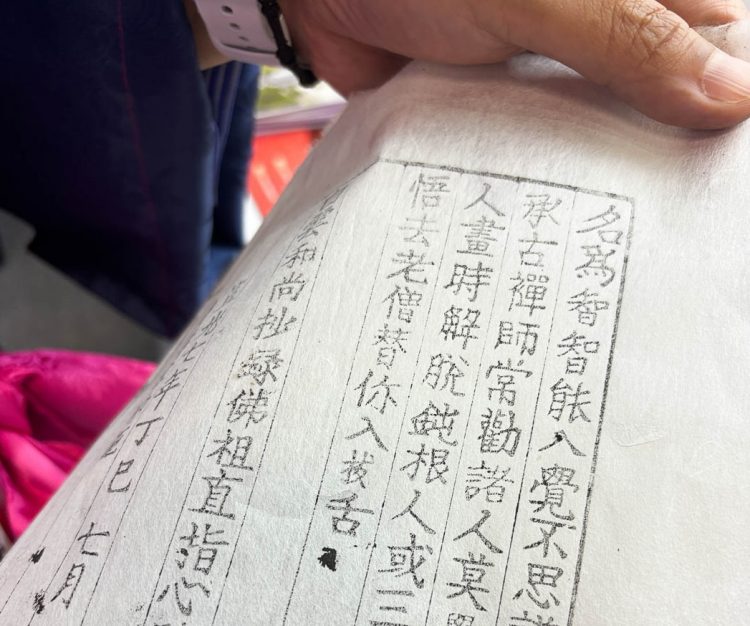 名爲智智能入覺不思
承古禪師常勸諸人莫
人畫時解脫鈍根人或三
悟去老僧替你入拔舌
和尚抄録佛祖直指心
七年丁巳 七月